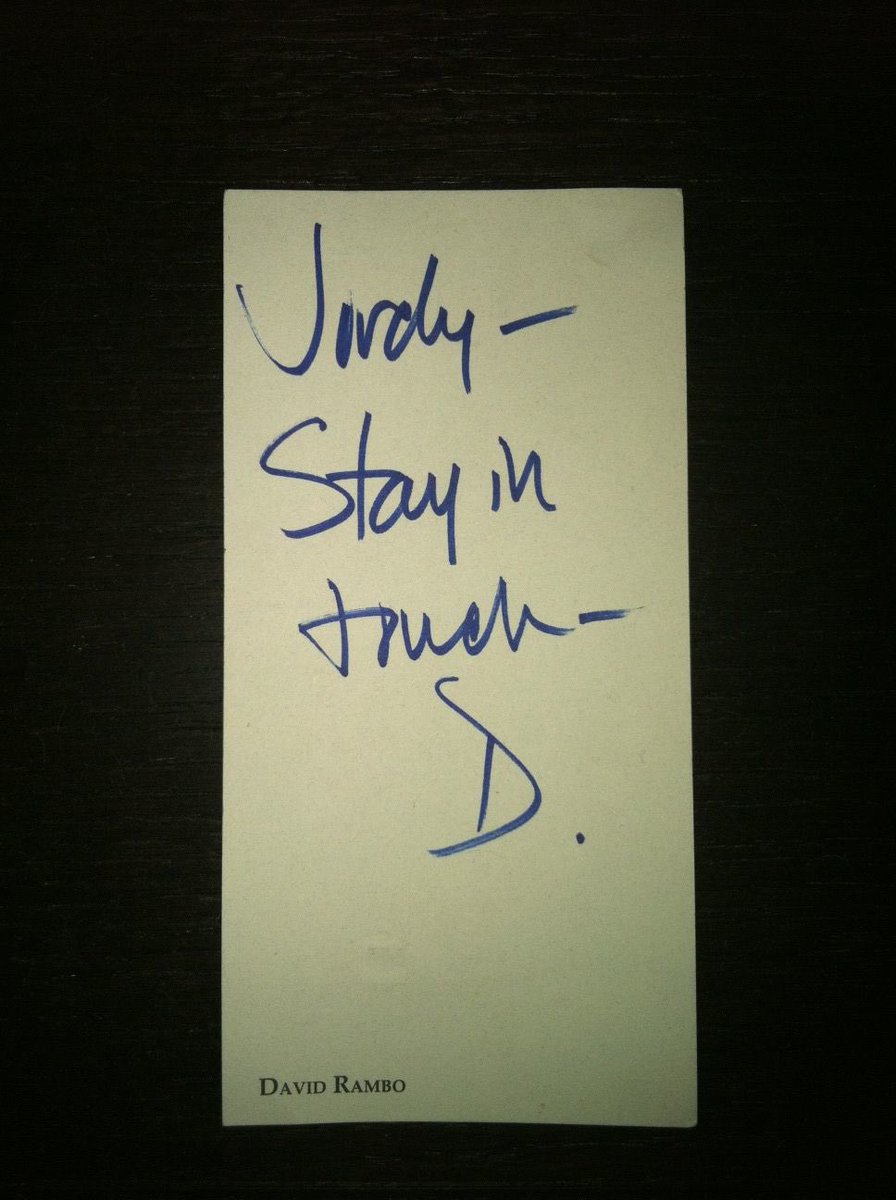 Jordy –
Stay in
touch –
D.
DAVID RAMBO